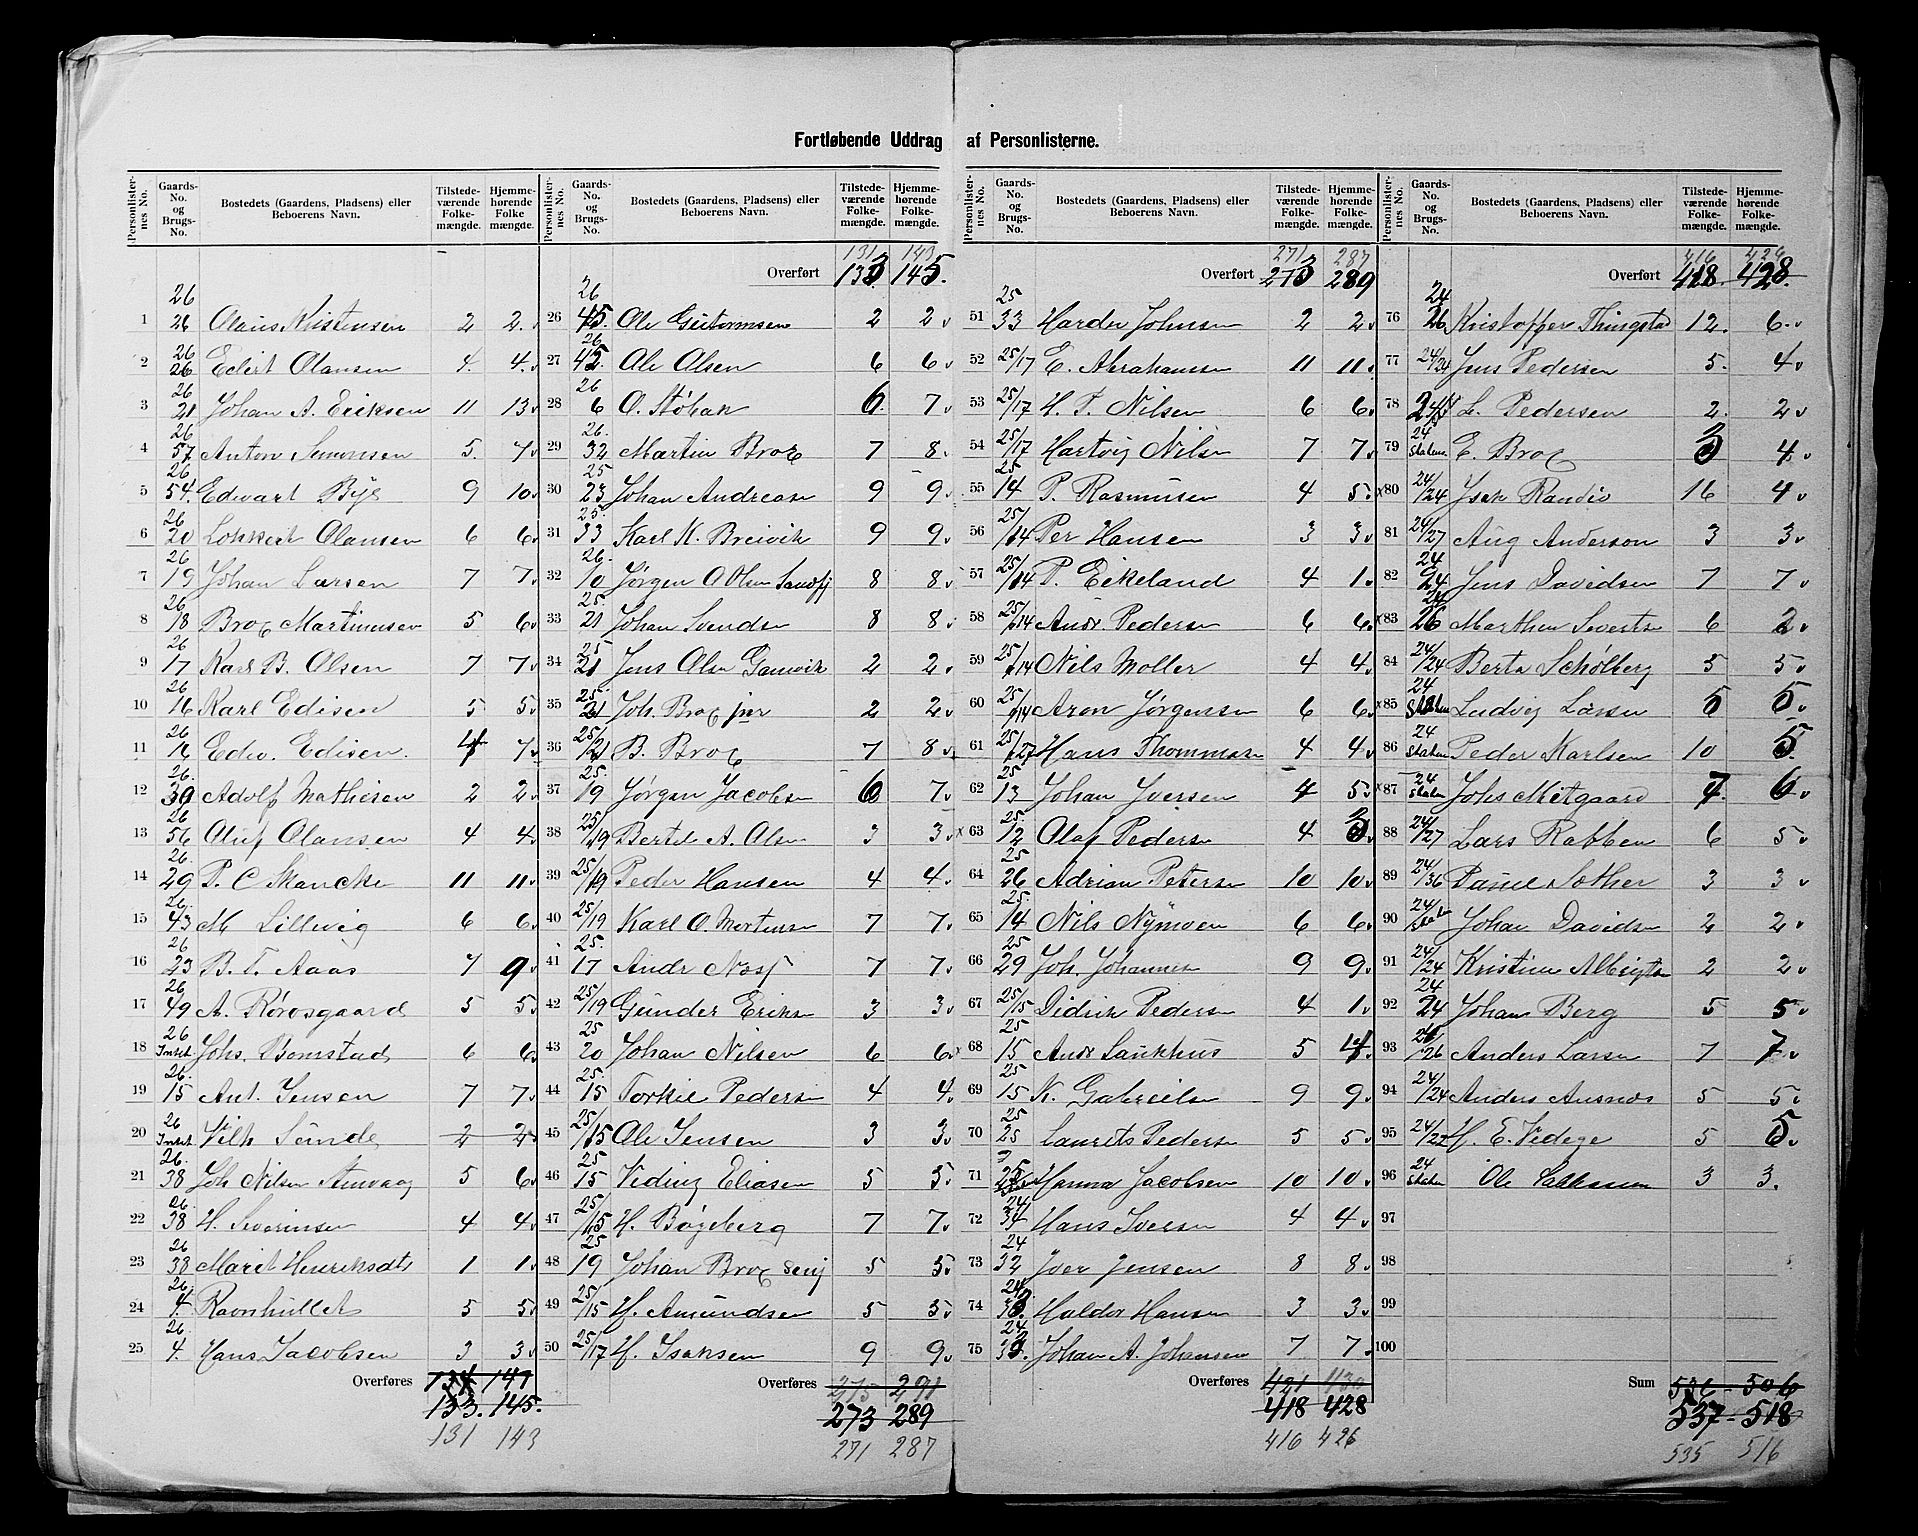 Fortløbende Uddrag af Personlisterne.
Personlisternes No. Gaards-No. og Brugs-No. Bostedets (Gaardens, Pladsens) eller Beboerens Navn. Tilstedeværende Folkemængde. Hjemmehørende Folkemængde.
1 26 26 Olaus Kristensen 2 2
2 26 26 Edert Olansen 4. 4.
3 26 21 Johan A. Eriksen 11 13
4 26 57 Anton Simonsen 5. 7
5 26 54. Edvart Bye 9 10
6 26 20 Lokkert Olansen 6 6
7 26 19 Johan Larsen 7 7
8 26 18 Brox Martinusen 5 6
9 26 17 Karl B. Olsen 7 7
10 26 16 Karl Edisen 5 5
11 26 16 Edw. Edisen. 4 7
12 26. 30 Adolf Mathisen 2 2
13 26 56 Oluf Olansen 4 4
14 26. 29 P. C Skancke 11 11
15 26. 43 M Lillevig 6 6
16 26 23 B. T. Aaas 7 9
17 26 49 A. Rørosgaard 5 5
18 26 Intet. Johs. Bomstad 6 6
19 26. 15 Ant. Jensen 7 7
20 26 Intet. Vilh Sunde 2 2
21 26. 38 Joh Nilsen 5 6
22 26. 38 H. Severinsen 4 4
23 26 38 Marit Henriksdt 1 1
24 26. 4. Ravnhullet 5 5
25 26. 4. Hans Jacobsen 3 3
Overføres 134 147
133. 145.
131 143
131 143
Overført 133 145.
26 26 45. Ole Gutormsen 2 2
27 26 42. Ole Olsen 6 6
28 26 6 O. Støbak 6. 7
29 26. 32 Martin Brox 7 8
30 25 23 Johan Andreasn 9 9
31 25. 33 Karl K. Breivik 9 9
32 26. 10 Jørgen O Olsen 8 8
33 25. 21 Johan Svends 8 8
34 25 21 Jens Olsn Granvik 2 2
35 25. 21 Joh. Brox jnr 2 2
36 25/21 B. Brox 7 8
37 25. 19 Jørgen Jacobsn 6 7
38 25/19 Bertel A. Olsn 3 3
39 25/19 Peder Hansen 4 4
40 25/19 Karl O. Mortensn 7 7
41 25. 17 Andr 7 7
42 25/19 Gunder Eriksn 3 3
43 25 20 Johan Nilsen 6 6
44 25. 15 Torkil Pedersn 4 4
45 25/15 Ole Jensen 3 3
46 25 15 Viding Eliasen 5 5
47 25/15 H. Bøgeberg 7 7
48 25 19 Johan Brox senj 5 5
49 25/15 H. Amundsen 5 5
50 25/17 H. Isaksen 9 9
Overføres 275 291
273 289
271 287
271 287
Overført 273 289
51 25 33 Harder Johnsen 2 2
52 25/17 E. Abrahamsn 11 11
53 25/17 H. P. Nilsen 6 6
54 25/17 Hartvig Nilsn 7 7
55 25 14 P. Rasmusen 4 5
56 25/14 Per Hansen 3 3
57 25/14 P. Eikeland 4 1
58 25/14 Andr. Pedersn 6 6
59 25/14 Nils Moller 4 4
60 25/14 Aron Jørgensn 6 6
61 25/27 Hans Thommasn 4 4
62 25 13 Johan Iversen 4 5
x 63 25. 12 Olaf Pedersn 4 3
64 25 26 Adrian Petersn 10 10
65 25. 14 Nils Nymoen 6 6
66 25 29 Joh. Johannesn 9 9
67 25/15 Didrik Pedersn 4 1
x 68 25 15 Andr Saukhus 5 4
69 25 15 K. Gabrielsn 9 9
70 25 25 Laurits Pedersn 5 5
71 25 Hanna Jacobsen 10 10
72 24 34 Hans Iversn 4 4
73 24 32 Iver Jensen 8 8
74 24 33 Haldor Hansn 3 3
75 24 33. Johan A. Johansen 7 7
Overføres 421 430
418 428
416 426
416 426
Overført 418. 428.
76 24 26 Kristoffer Thingstad 12. 6
77 24/24 Jens Pedersen 5. 4
78 24 L. Pedersen 2. 2
79 24 Skaten E. Brox 3 4
x80 24/24 Isak Randiv 16 4
81 24/27 Aug Anderson 3 3
82 24 24 Jens Davidsn 7 7
x83 24 26 Marthen Severts 6 2
84 24/24 Berta Schølberg 5 5
x85 24 Skaten Ludvig Larsen 5 5
86 24 Skaten Peder Karlsen 10 5.
x87 24 Skaten Johs Metgaard 7. 6
88 24/27 Lars Rabben 6 5
89 24/36 Daniel Sother 3 3
90 24/Skaten Johan Davidsn 2 2
91 24/24 Kristine Albrigts 2 2
92 24 24 Johan Berg 5 5
93 24/26 Anders Larsn 7 7
94 24/24 Anders Ausnes 5 5
95 24/27 H. E. Vedege 5 5
96 24 Skaten Ole 3 3.
97
98
99
100
Sum 536 506
537 518
535 516